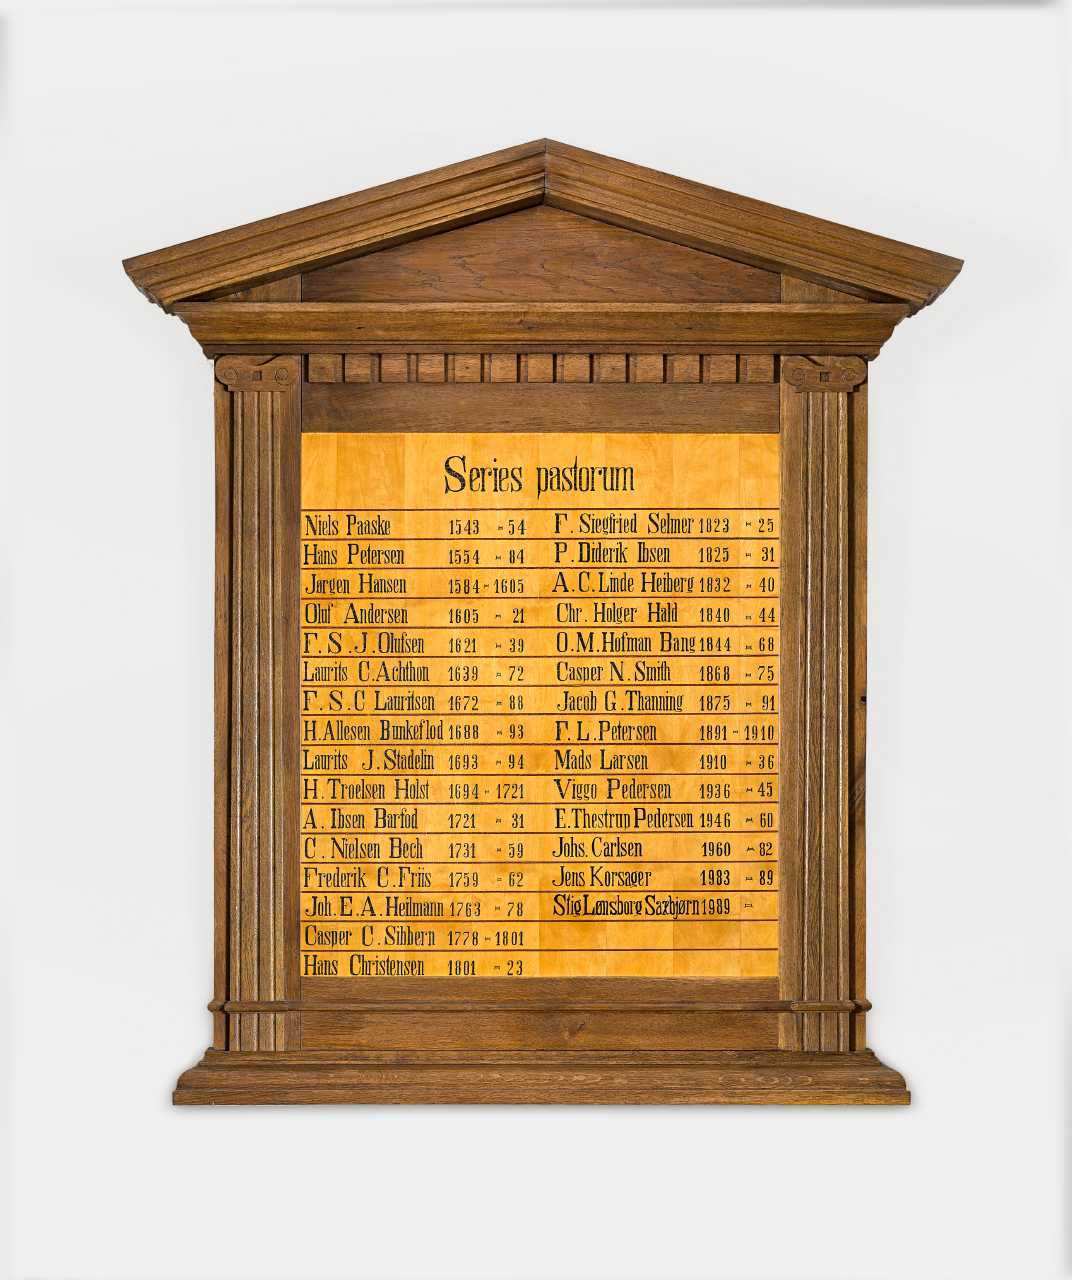 Series pastorum
Niels Paaske 1543 - 54
Hans Petersen 1554 - 84
Jørgen Hansen 1584 - 1605
Oluf Andersen 1605 - 21
F. S. J. Olufsen 1621 - 39
Laurits C. Achthon 1639 - 72
F. S. C Lauritsen 1672 - 88
H. Allesen Bunkeflod 1688 - 93
Laurits J. Stadelin 1693 - 94
H. Troelsen Holst 1694 - 1721
A. Ibsen Barfod 1721 - 31
C. Nielsen Bech 1731 - 59
Frederik C. Friis 1759 - 62
Joh. E. A. Heilmann 1763 - 78
Casper C. Sibbern 1778 - 1801
Hans Christensen 1801 - 23
F. Siegfried Selmer 1823 - 25
P. Diderik Ibsen 1825 - 31
A. C. Linde Heiberg 1832 - 40
Chr. Holger Hald 1840 - 44
O. M. Hofman Bang 1844 - 68
Casper N. Smith 1868 - 75
Jacob G. Thanning 1875 - 91
F. L. Petersen 1891 - 1910
Mads Larsen 1910 - 36
Viggo Pedersen 1936 - 45
E. Thestrup Pedersen 1946 - 60
Johs. Carlsen 1960 - 82
Jens Korsager 1983 - 89
Stig Lønsborg Saxbjørn 1989 -